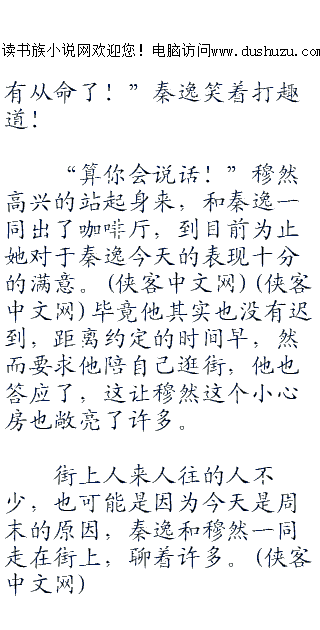 读书族小说网欢迎您！电脑访问www.dushuzu.com
有从命了！”秦逸笑着打趣
道！
“算你会说话！”穆然
高兴的站起身来，和秦逸一
同出了咖啡厅，到目前为止
她对于秦逸今天的表现十分
的满意。(侠客中文网)(侠客
中文网)毕竟他其实也没有迟
到，距离约定的时间早，然
而要求他陪自己逛街，他也
答应了，这让穆然这个小心
房也敞亮了许多。
街上人来人往的人不
少，也可能是因为今天是周
末的原因，秦逸和穆然一同
走在街上，聊着许多。(侠客
中文网)